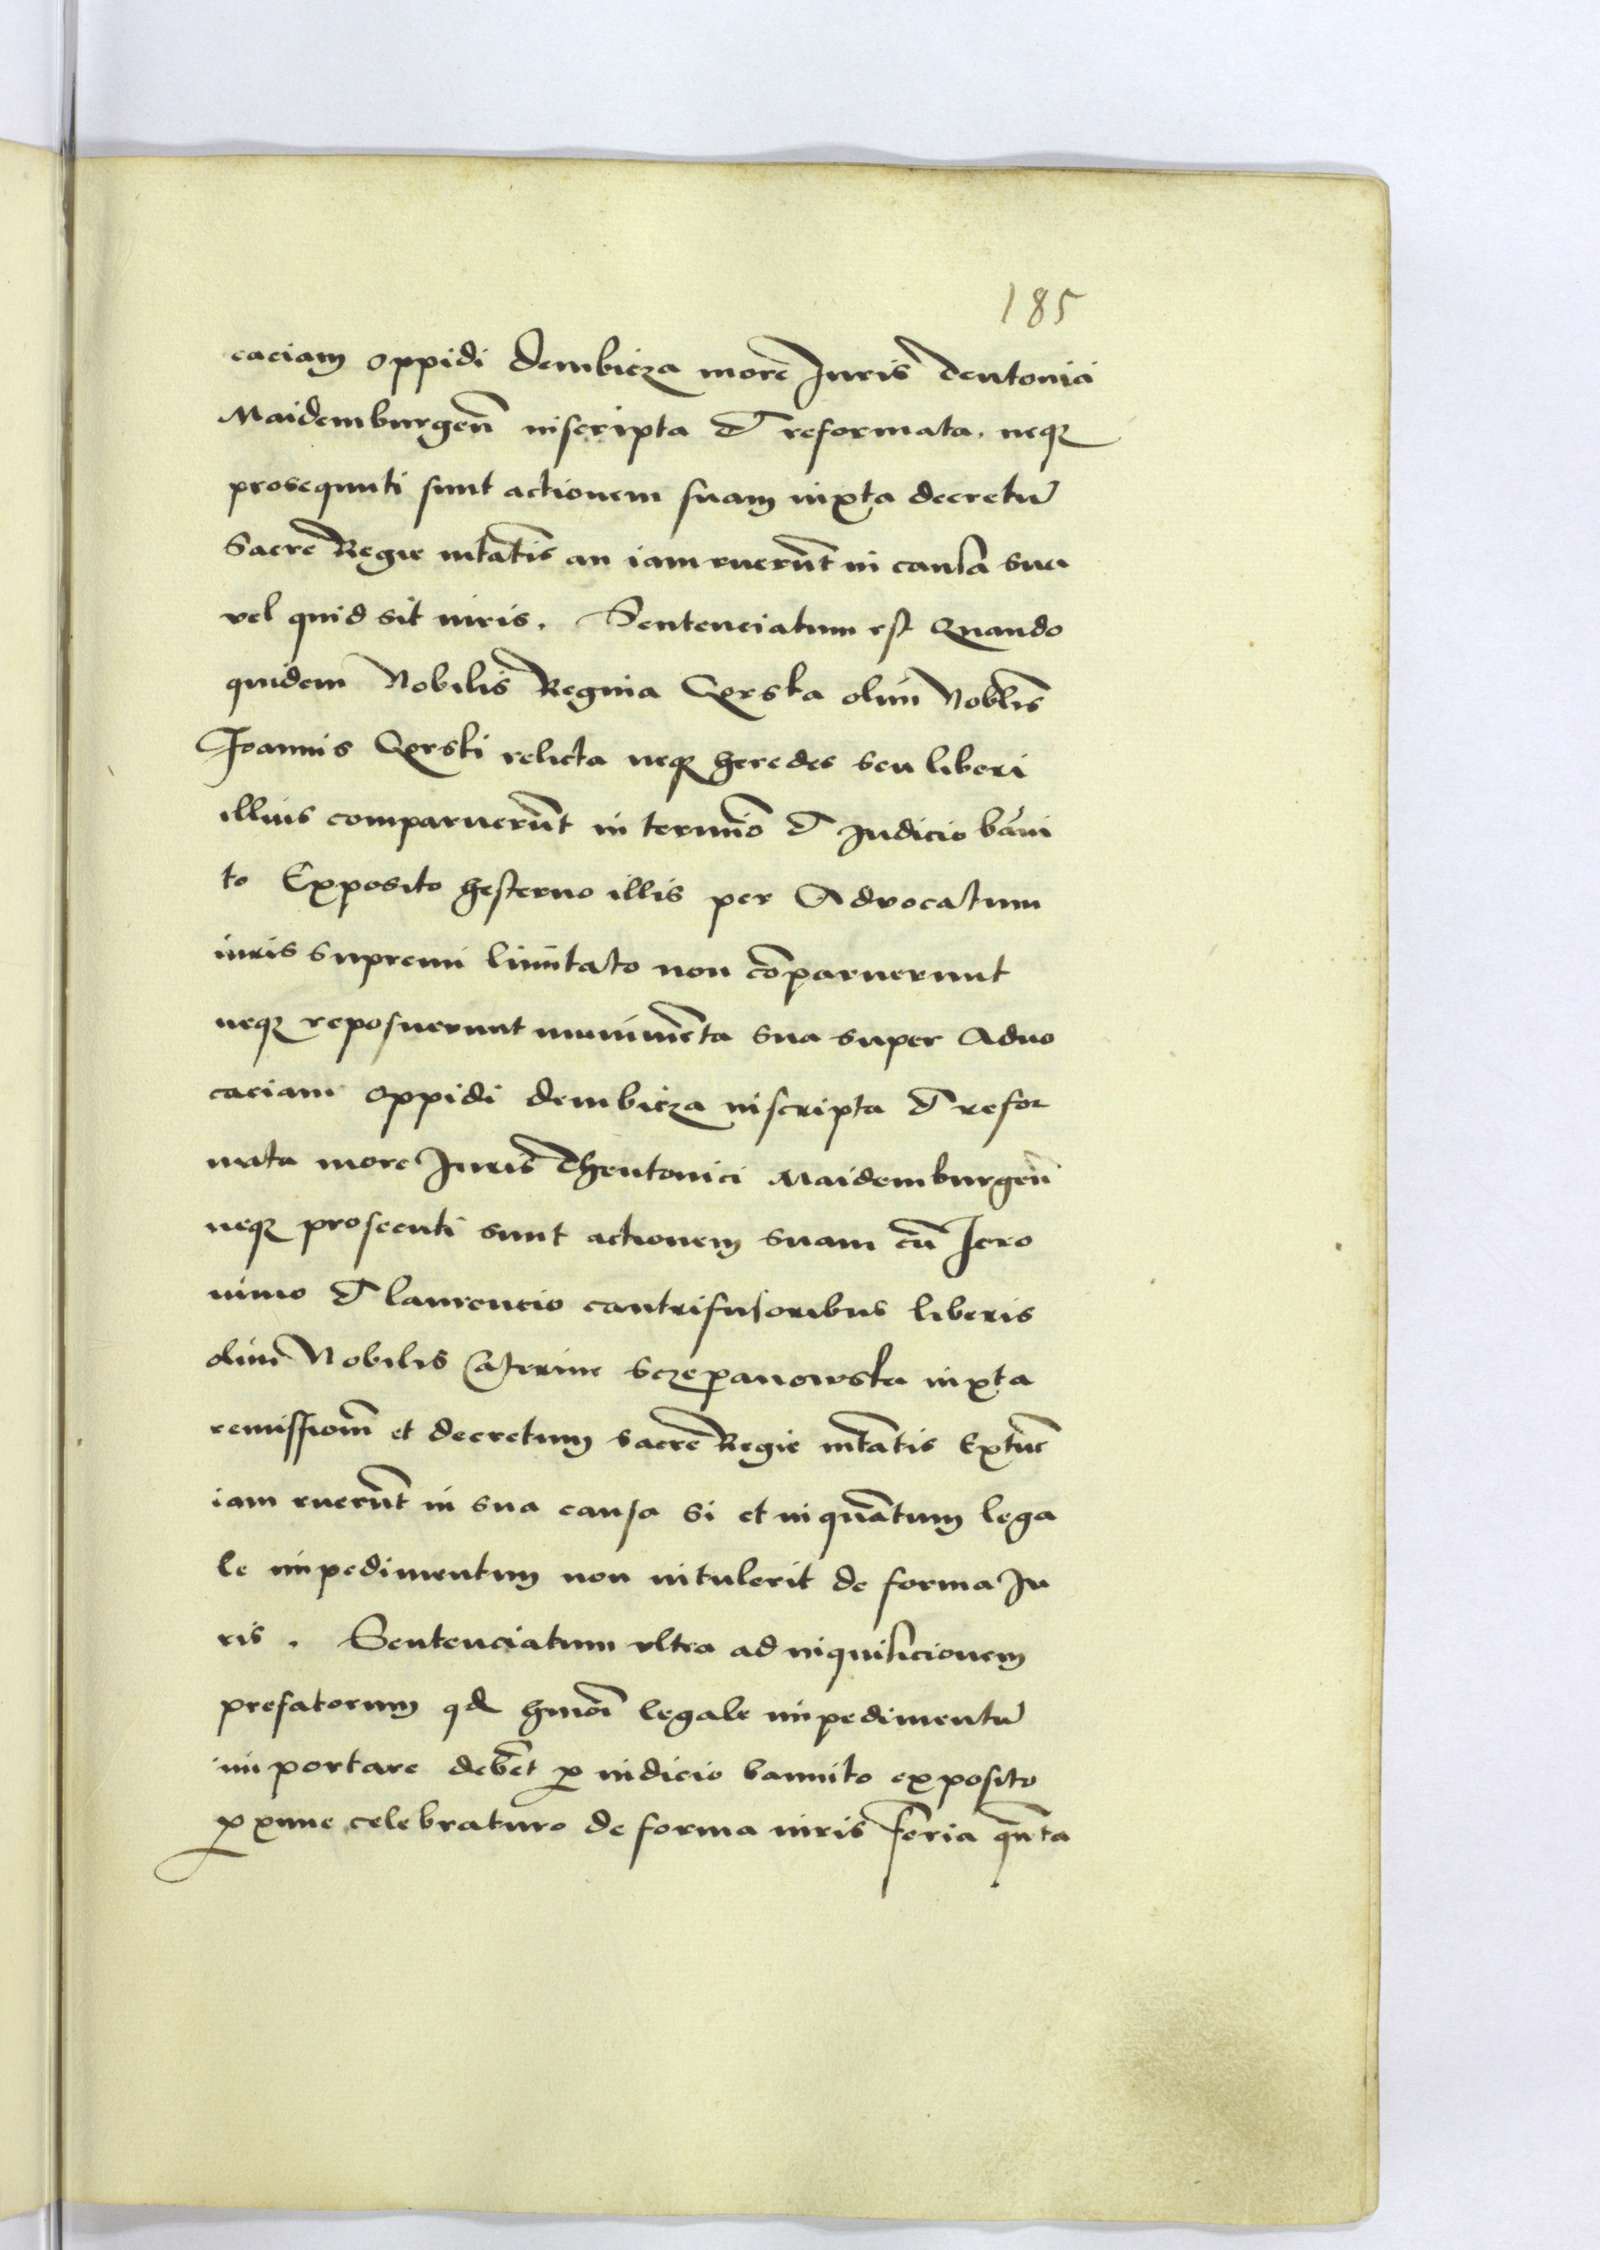 185
caciam oppidi dembicza more Iuris deutonici
Maidemburgeñ inscripta et reformata. neqȝ
prosequuti sunt actionem suam iuxta decretū
Sacre Regie mtatis an iam ruerūt in causa sua
vel quid sit iuris. Sentenciatum est Quando
quidem Nobilis Regina Gorska olim Nobłis
Joannis Gorski relicta neqȝ heredes seu liberi
illius comparuerūt in termīo et Iudicio bāni
to Exposito hesterno illis per Advocatum
iuris supremi limitato non cōparuerunt
neqȝ reposuerunt munimēta sua super Advo
caciam oppidi dembicza inscripta et refor
mata more Iuris theutonici Maidemburgeñ
neqȝ prosecuti sunt actionem suam cū Iero
nimo et laurencio cantrifusoribus liberis
olim Nobilis Caterine Sczepanowska iuxta
remissionē et decretum sacre Regie mtatis Extūc
iam ruerūt in sua causa si et in quātum lega
le impedimentum non intulerit de forma Iu
ris. Sentenciatum vltra ad inquisicionem
prefatorum qd hmōi legale impedimentū
importare debēt ꝓ iudicio bannito exposito
ꝓxime celebraturo de forma iuris feria qūta